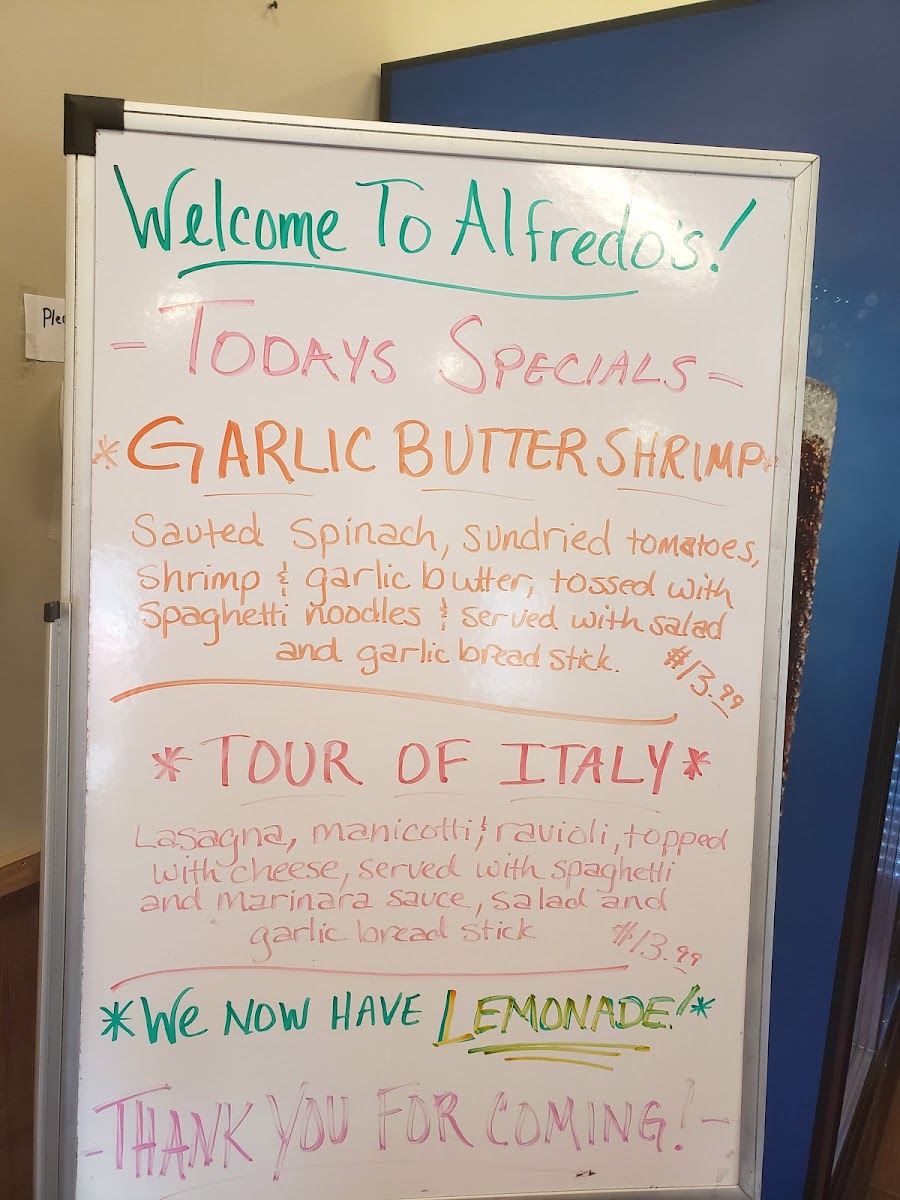 Welcome To Alfredo's!
- Todays Specials -
*GARLIC BUTTER SHRIMP*
Sauted Spinach, sundried tomatoes,
shrimp & garlic butter, tossed with
spaghetti noodles & served with salad
and garlic bread stick. $13.99
*TOUR OF ITALY*
Lasagna, manicotti & ravioli, topped
with cheese, served with spaghetti
and marinara sauce, salad and
garlic bread stick $13.99
*We NOW HAVE LEMONADE!*
-THANK YOU FOR COMING!-